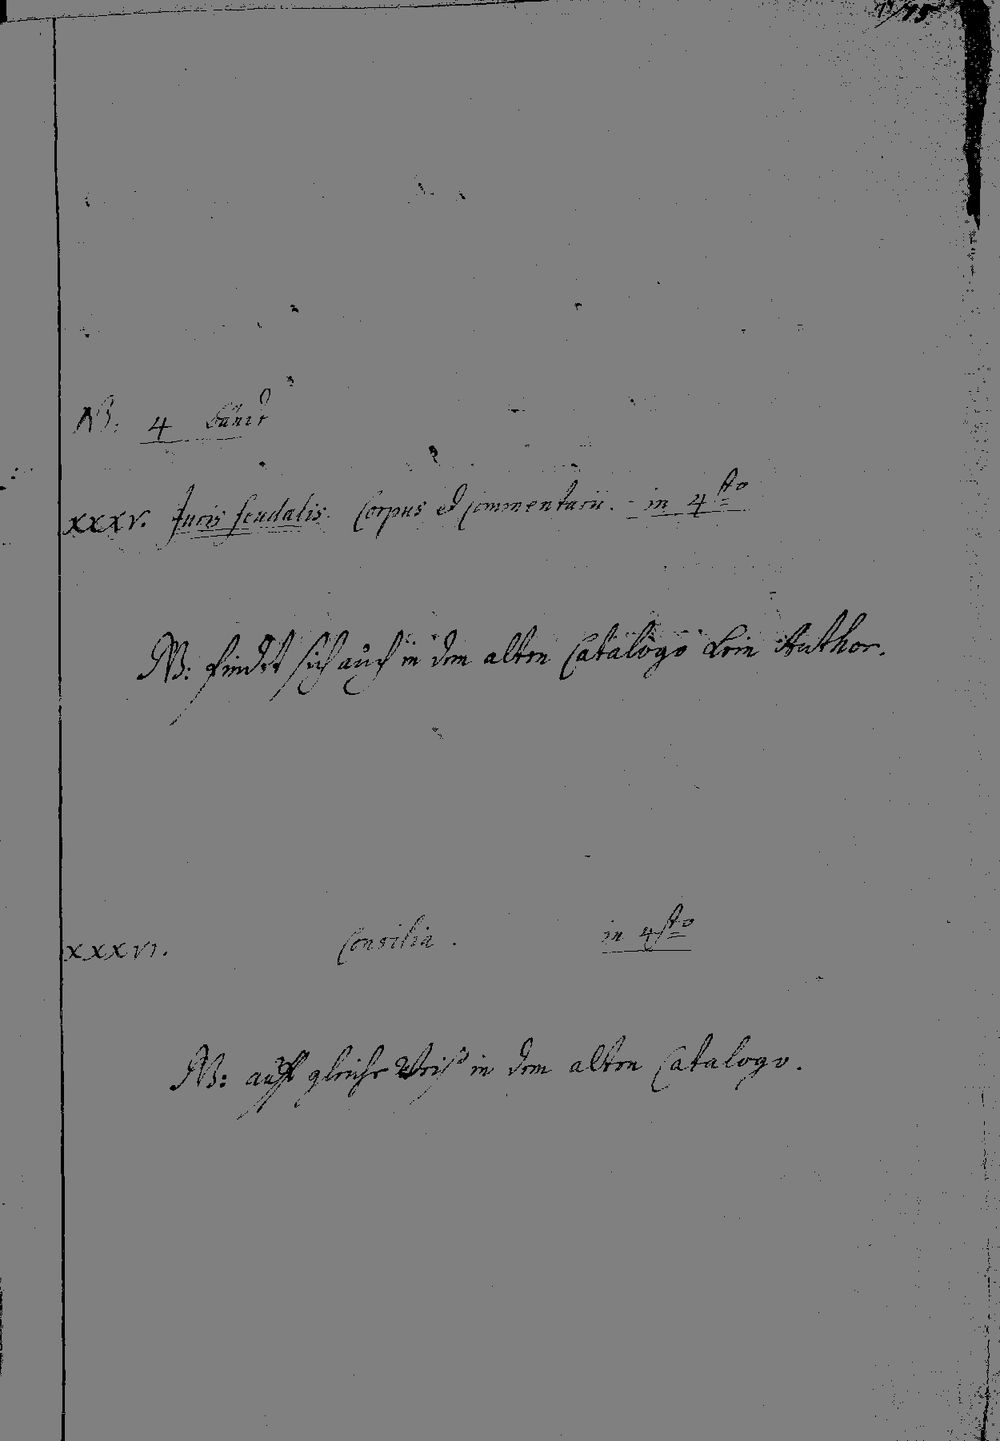 NB: 4
XXXV. Juris feudalis. Corpus et Commentarii. - in 4sto
NB: findet sich auch in dem alten Catalogo kein Author.
XXXVI. Consilia. in 4sto
NB: auff gleiche Weiß in dem alten Catalogo.